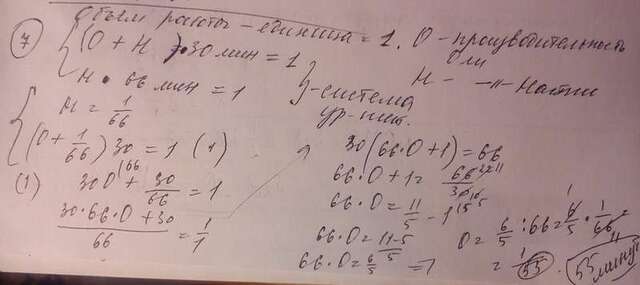 Объем работы - единица = 1.
О - производительность Оли
Н - -"- Насти
7 (О + Н) · 30 мин = 1
Н · 66 мин = 1
} - система ур-ний.
Н = 1/66
(О + 1/66) 30 = 1 (1)
(1) 30 О + 30/66 = 1
(30·66·О + 30)/66 = 1/1
30(66·О + 1) = 66
66·О + 1 = 66/30
66·О = 11/5 - 1
66·О = (11-5)/5
66·О = 6/5 =>
О = 6/5 : 66 = 6/5 · 1/66
= 1/55
55 минут